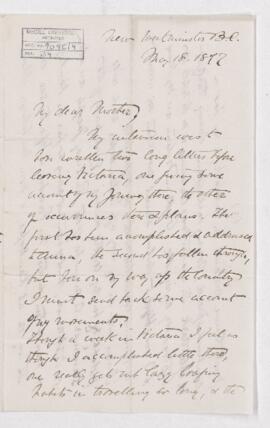 McGILL UNIVERSITY
ARCHIVES
ACC. NO.
REF.
New Westminster B.C.
May 18. 1877
My dear Mother,
My intention was to
have written two long letters before
leaving Victoria, one giving some
account of my Journey there, the other
of occurrences there & plans. The
first has been accomplished & addressed
to Anna, the second has fallen through,
but here on my way up the Country
I must send back some account
of my movements.
Though a week in Victoria I feel as
though I accomplished little there,
one really gets into lazy loafing
habits in travelling so long, & the